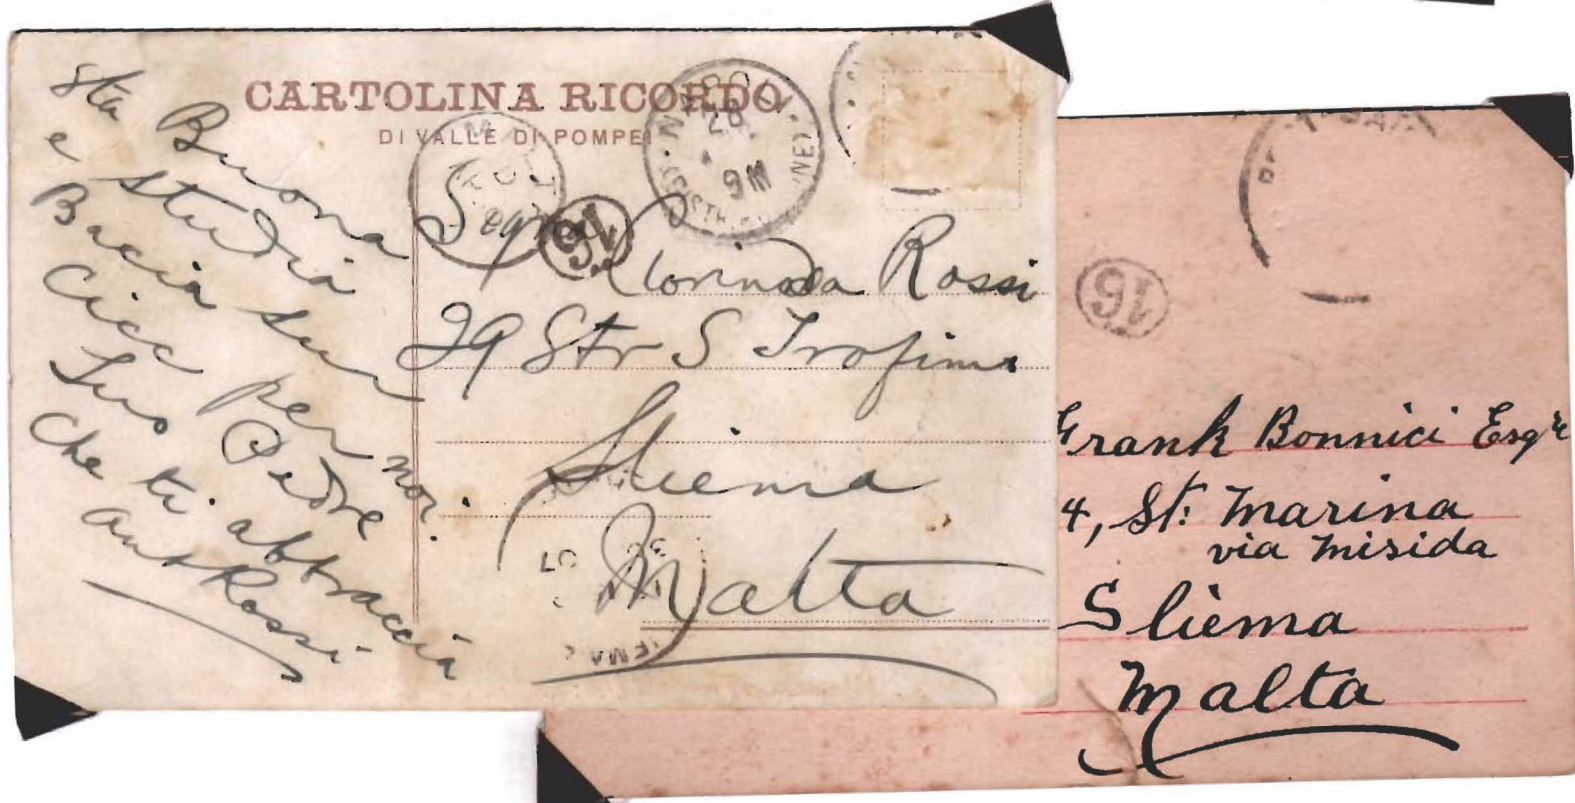 CARTOLINA RICORDO
DI VALLE DI POMPEI
Sta Buona
e studia
Bacia
Cicc per noi.
Tuo Padre
che ti abbraccia
Ant Rossi
NAPOLI
28
9M
MALTA
16
Segra Clorinda Rossi
29 Str S Trofimo
Sliema
Malta
30
07
16
Frank Bonnici Esqre
4, St: Marina
via Misida
Sliema
Malta